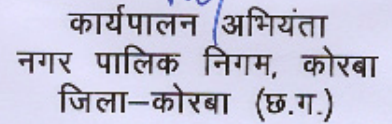 कार्यपालन अभियंता
नगर पालिक निगम, कोरबा
जिला–कोरबा (छ.ग.)